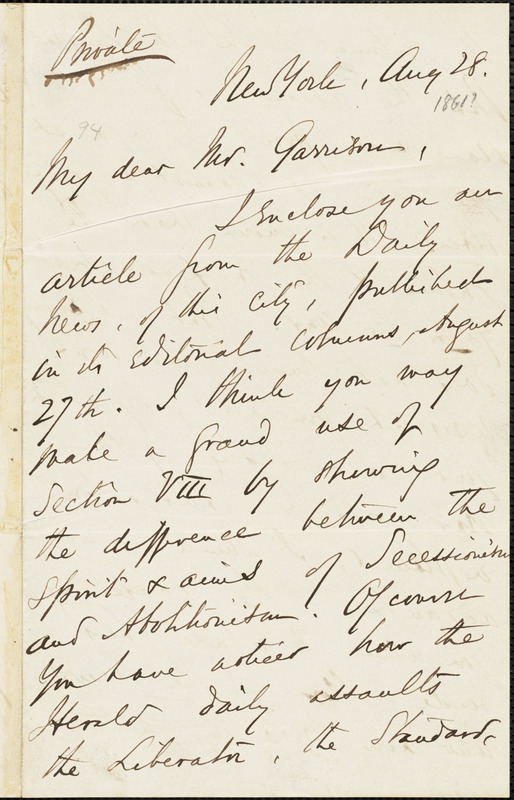 Private
New York, Aug 28.
1861?
94
My dear Mr. Garrison,
I Enclose you an
article from the Daily
News, of this city, published
in its Editorial columns, August
27th. I think you may
make a grand use of
Section VIII by showing
the difference between the
spirit & aims of Secessionism
and Abolitionism. Of course
you have noticed how the
Herald daily assaults
the Liberator, the Standard,